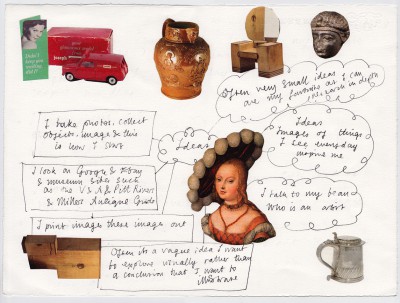 Often very small ideas
are my favourite as I can
research in depth
I take photos, collect
objects, images & this
is how I start
Ideas
Ideas
Images of things
I see everyday
inspire me
I look on Google & Ebay
& museum sites such
as the V&A & Pitt Rivers
& Millers Antique Guide
I talk to my
Who is an artist
I print images these images one
Often its a vague idea I want
to explore visually rather than
a conclusion that I want to
illustrate